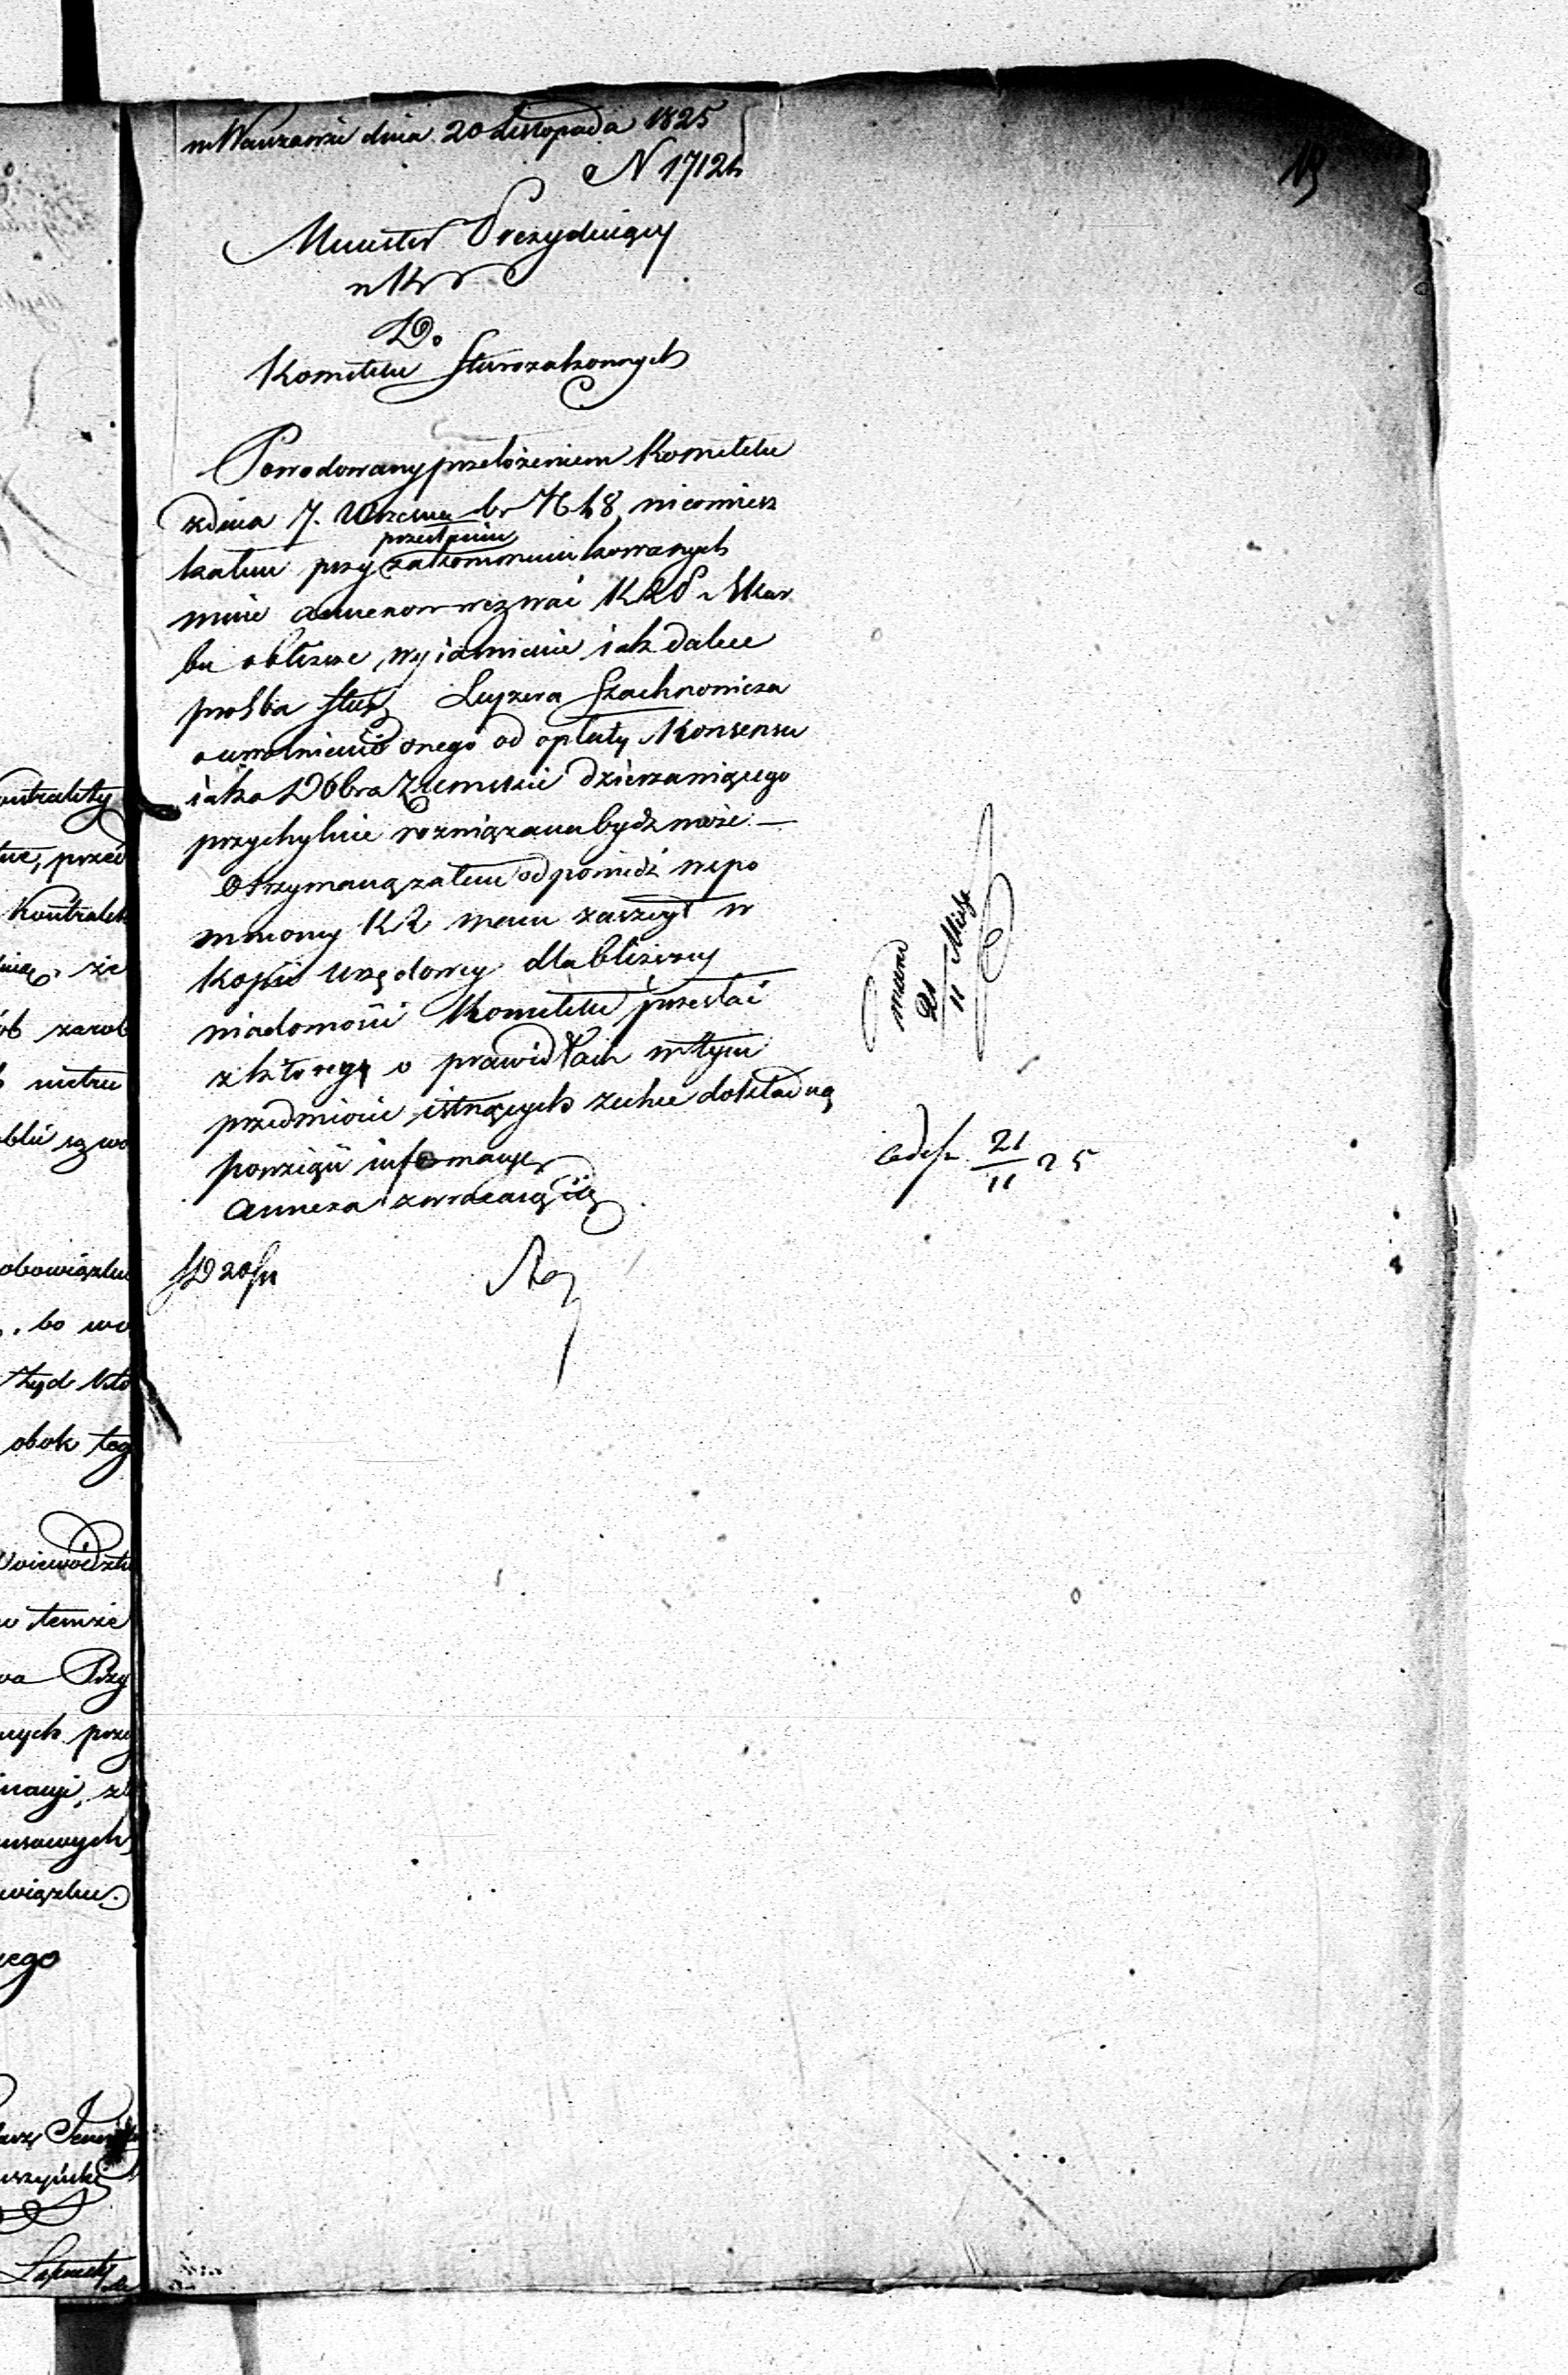 w Warszawie dnia 20 Listopada 1825
N 17124
19
Minister Prezyduiący
w K R
Do
Komitetu Starozakonnych
Powodowany przełożeniem Komitetu
z dnia 7. Września br N 48, nieomiesz
przesłaniu
kałem przy zakommunikowanych
mnie annexow wezwać K R P i Skar
bu o bliższe wyiaśnienie iak dalece
prośba Star Leyzera Szachnowicza
o uwolnienie onego od opłaty Konsensu
iako Dobra Ziemskie dzierżawiącego
przychylnie rozwiązana bydź może. —
Otrzymaną zatem odpowiedź wspo
mnioney K R mam zaszczyt w
kopii urzędowey dla bliższey
wiadomości Komitetu przesłać
z którey o prawidłach w tym
przedmiocie istnących zechce dokładną
powziąść informacyę
Annexa zwracaią się
D 20/11
21
11
21
11 25
ontrakty
tuc, przed
Kontrakt
że
ób zarob
obowiązku
, bo wo
Żyd któ
obok teg
Woiewództw
w temże
wa Przy
nych przy
usowych
wiązku.
ego